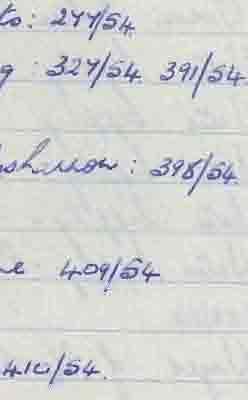 to: 277/54
g: 327/54 391/54
: 398/54
e 409/54
410/54.